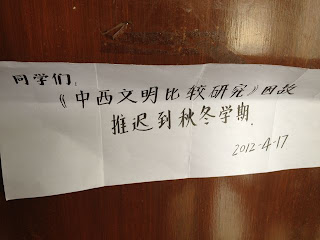 同学们:
《中西文明比较研究》因故
推迟到秋冬学期.
2012-4-17